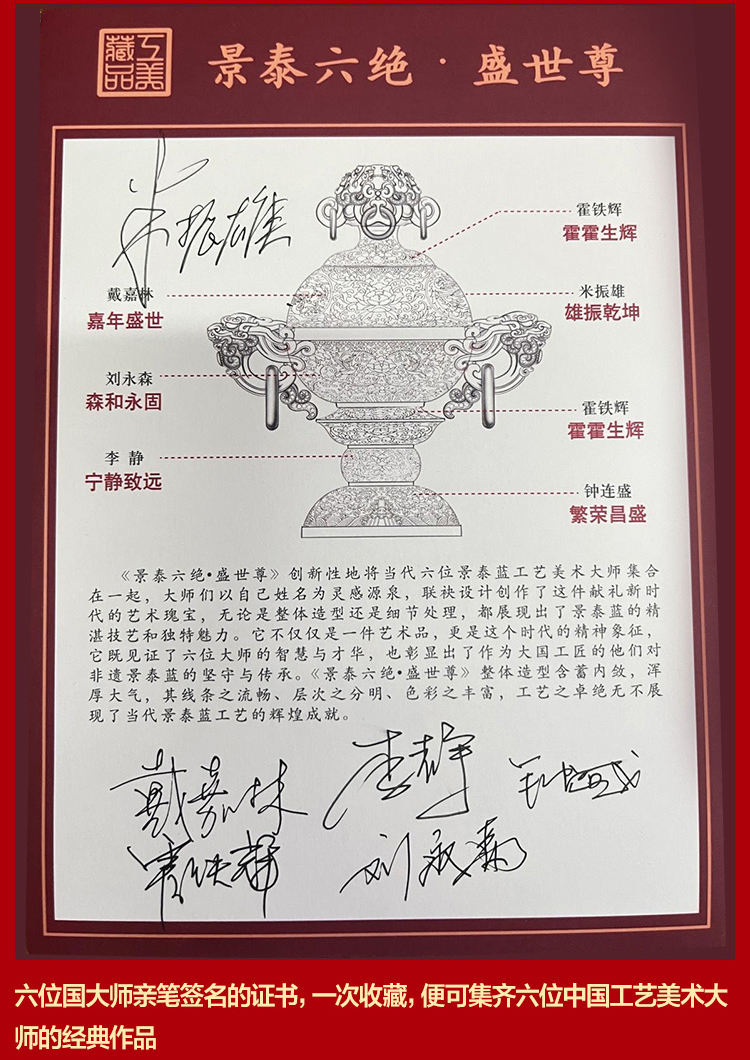 工美
藏品
景泰六绝·盛世尊
米振雄
霍铁辉
霍霍生辉
戴嘉林
嘉年盛世
米振雄
雄振乾坤
刘永森
森和永固
霍铁辉
霍霍生辉
李 静
宁静致远
钟连盛
繁荣昌盛
《景泰六绝•盛世尊》创新性地将当代六位景泰蓝工艺美术大师集合
在一起，大师们以自己姓名为灵感源泉，联袂设计创作了这件献礼新时
代的艺术瑰宝，无论是整体造型还是细节处理，都展现出了景泰蓝的精
湛技艺和独特魅力。它不仅仅是一件艺术品，更是这个时代的精神象征，
它既见证了六位大师的智慧与才华，也彰显出了作为大国工匠的他们对
非遗景泰蓝的坚守与传承。《景泰六绝•盛世尊》整体造型含蓄内敛，浑
厚大气，其线条之流畅、层次之分明、色彩之丰富，工艺之卓绝无不展
现了当代景泰蓝工艺的辉煌成就。
戴嘉林
李静
钟连盛
霍铁辉
刘永森
六位国大师亲笔签名的证书，一次收藏，便可集齐六位中国工艺美术大
师的经典作品